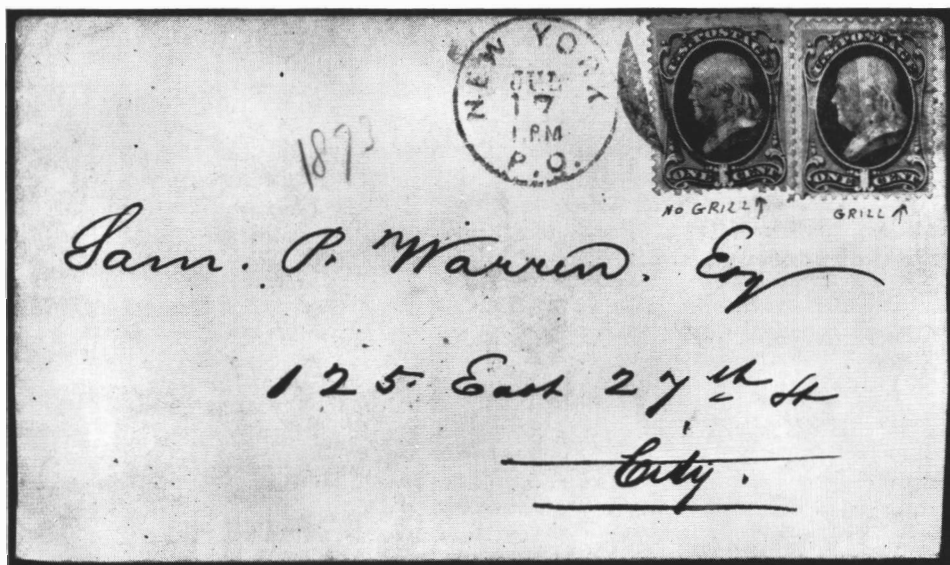 NEW YORK
JUL
17
1 PM
P.O.
U.S. POSTAGE
ONE 1 CENT
U.S. POSTAGE
ONE 1 CENT
NO GRILL ↑
GRILL ↑
1873
Sam. P. Warren. Esq
125 East 27th St
City.